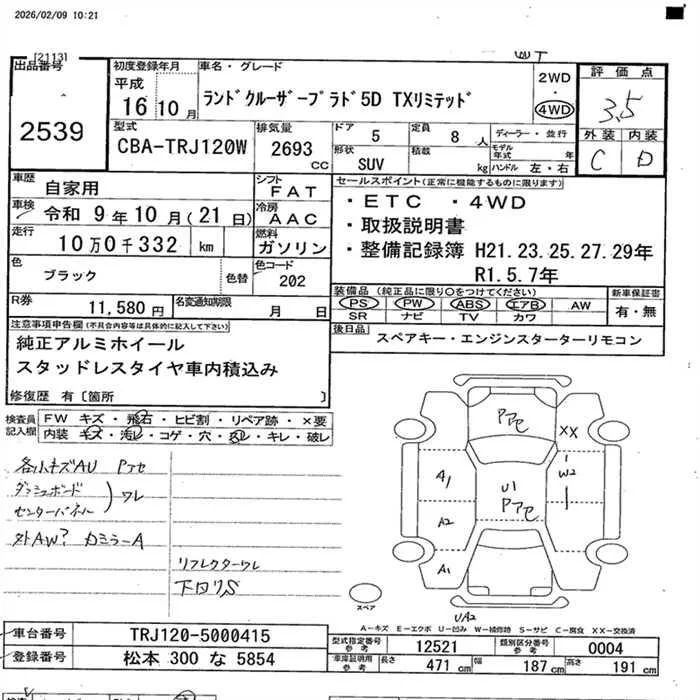 2026/02/09 10:21
[2113]
出品番号
2539
初度登録年月
平成
16年10月
車名・グレード
ランドクルーザープラド5D TXリミテッド
2WD
・
4WD
評価点
3.5
外装 内装
C D
型式
CBA-TRJ120W
排気量
2693
CC
ドア 5
定員 8 人
形状 SUV
積載 kg
ディーラー・並行
モデル年式 年
ハンドル 左・右
車歴
自家用
シフト
FAT
車検 令和 9年10月(21日)
冷房
AAC
走行
10万0千332 km
燃料
ガソリン
色
ブラック
色替
色コード
202
R券
11,580円
名変通知期限
月 日
セールスポイント(正常に機能するものに限ります)
・ETC ・4WD
・取扱説明書
・整備記録簿 H21.23.25.27.29年
R1.5.7年
装備品(純正品に限り○をつけてください)
PS PW ABS エアB AW
SR ナビ TV カワ
新車保証書
有・無
後日品
スペアキー・エンジンスターターリモコン
注意事項申告欄(不具合内容等は具体的に記入して下さい)
純正アルミホイール
スタッドレスタイヤ車内積込み
修復歴 有〔箇所 〕
検査員記入欄
FW キズ・飛石・ヒビ割・リペア跡・×要
内装 キズ・汚レ・コゲ・穴・スレ・キレ・破レ
各小キズAU Pアセ
ダッシュボード
センターパネル
ワレ
外AW? カミラーA
リフレクターワレ
下回リS
Pアセ
XX
A1
U1
Pアセ
W2
A2
A1
UA2
スペア
A-キズ E-エクボ U-凹み W-補修跡 S-サビ C-腐食 XX-交換済
車台番号 TRJ120-5000415
登録番号 松本 300 な 5854
型式指定番号 参考 12521
類別区分番号 参考 0004
車庫証明用 参考
長さ 471 cm
幅 187 cm
高さ 191 cm